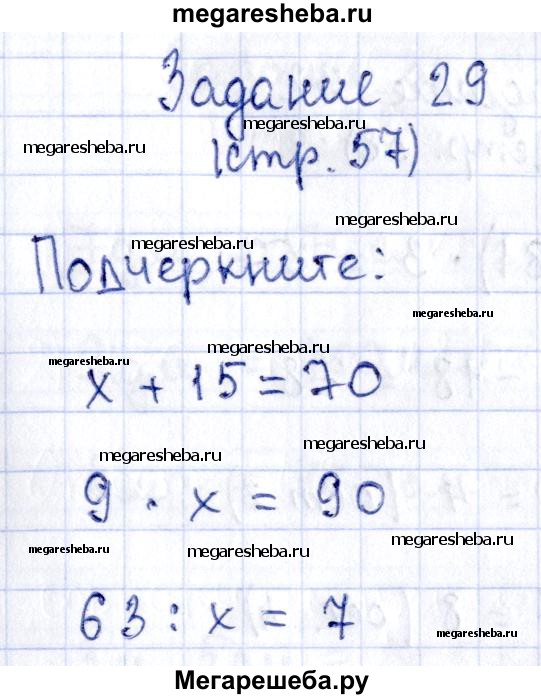 megaresheba.ru
Задание 29
megaresheba.ru
megaresheba.ru
(стр. 57)
megaresheba.ru
megaresheba.ru
Подчеркните:
megaresheba.ru
megaresheba.ru
megaresheba.ru
x + 15 = 70
megaresheba.ru
megaresheba.ru
9 · x = 90
megaresheba.ru
megaresheba.ru
megaresheba.ru
63 : x = 7
megaresheba.ru
Мегарешеба.ру